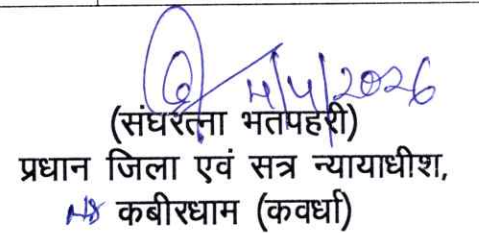 4/4/2026
(संघरत्ना भतपहरी)
प्रधान जिला एवं सत्र न्यायाधीश,
कबीरधाम (कवर्धा)